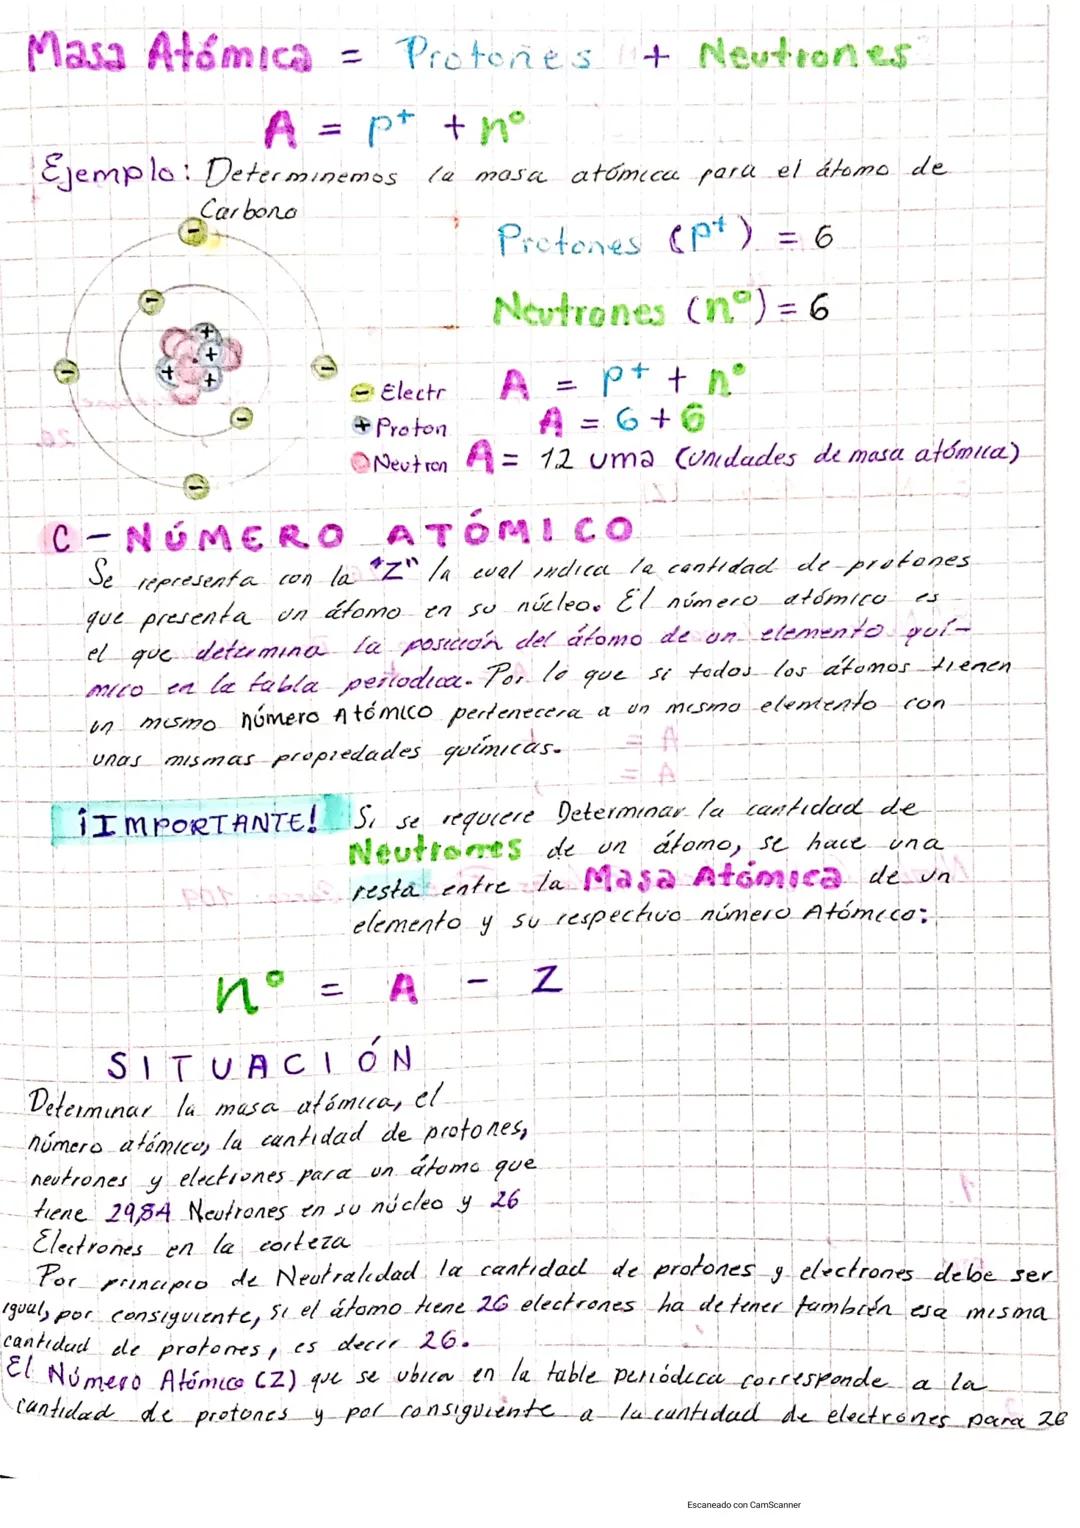 Masa Atómica = Protones + Neutrones
A = p+ + n°
Ejemplo: Determinemos la masa atómica para el átomo de
Carbono
Protones (p+) = 6
Neutrones (n°) = 6
Electr
Proton
Neutron
A = p+ + n°
A = 6 + 6
A = 12 uma (unidades de masa atómica)
C - NÚMERO ATÓMICO
Se representa con la "Z" la cual indica la cantidad de protones
que presenta un átomo en su núcleo. El número atómico es
el que determina la posición del átomo de un elemento quí-
mico en la tabla periodica. Por lo que si todos los átomos tienen
un mismo número Atómico pertenecera a un mismo elemento con
unas mismas propiedades químicas.
¡IMPORTANTE! Si se requiere Determinar la cantidad de
Neutrones de un átomo, se hace una
resta entre la Masa Atómica de un
elemento y su respectivo número Atómico:
n° = A - Z
SITUACIÓN
Determinar la masa atómica, el
número atómico, la cantidad de protones,
neutrones y electrones para un átomo que
tiene 29,84 Neutrones en su núcleo y 26
Electrones en la corteza
Por principio de Neutralidad la cantidad de protones y electrones debe ser
igual, por consiguiente, si el átomo tiene 26 electrones ha de tener también esa misma
cantidad de protones, es decir 26.
El Número Atómico (Z) que se ubica en la table periódica corresponde a la
cantidad de protones y por consiguiente a la cantidad de electrones para 26
Escaneado con CamScanner